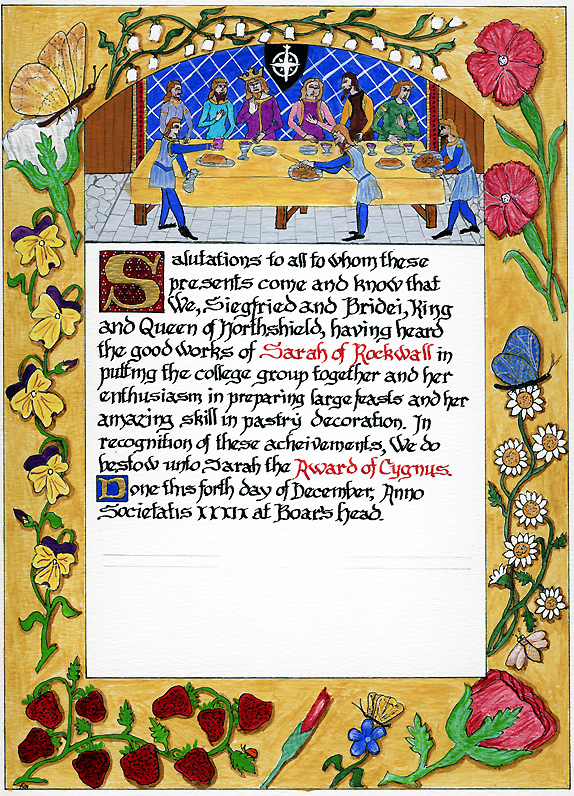 Salutations to all to whom these
presents come and know that
We, Siegfried and Bridei, King
and Queen of Northshield, having heard
the good works of Sarah of Rockwall in
putting the college group together and her
enthusiasm in preparing large feasts and her
amazing skill in pastry decoration. In
recognition of these acheivements, We do
bestow unto Sarah the Award of Cygnus.
Done this forth day of December, Anno
Societatis XXXIX at Boar's head.